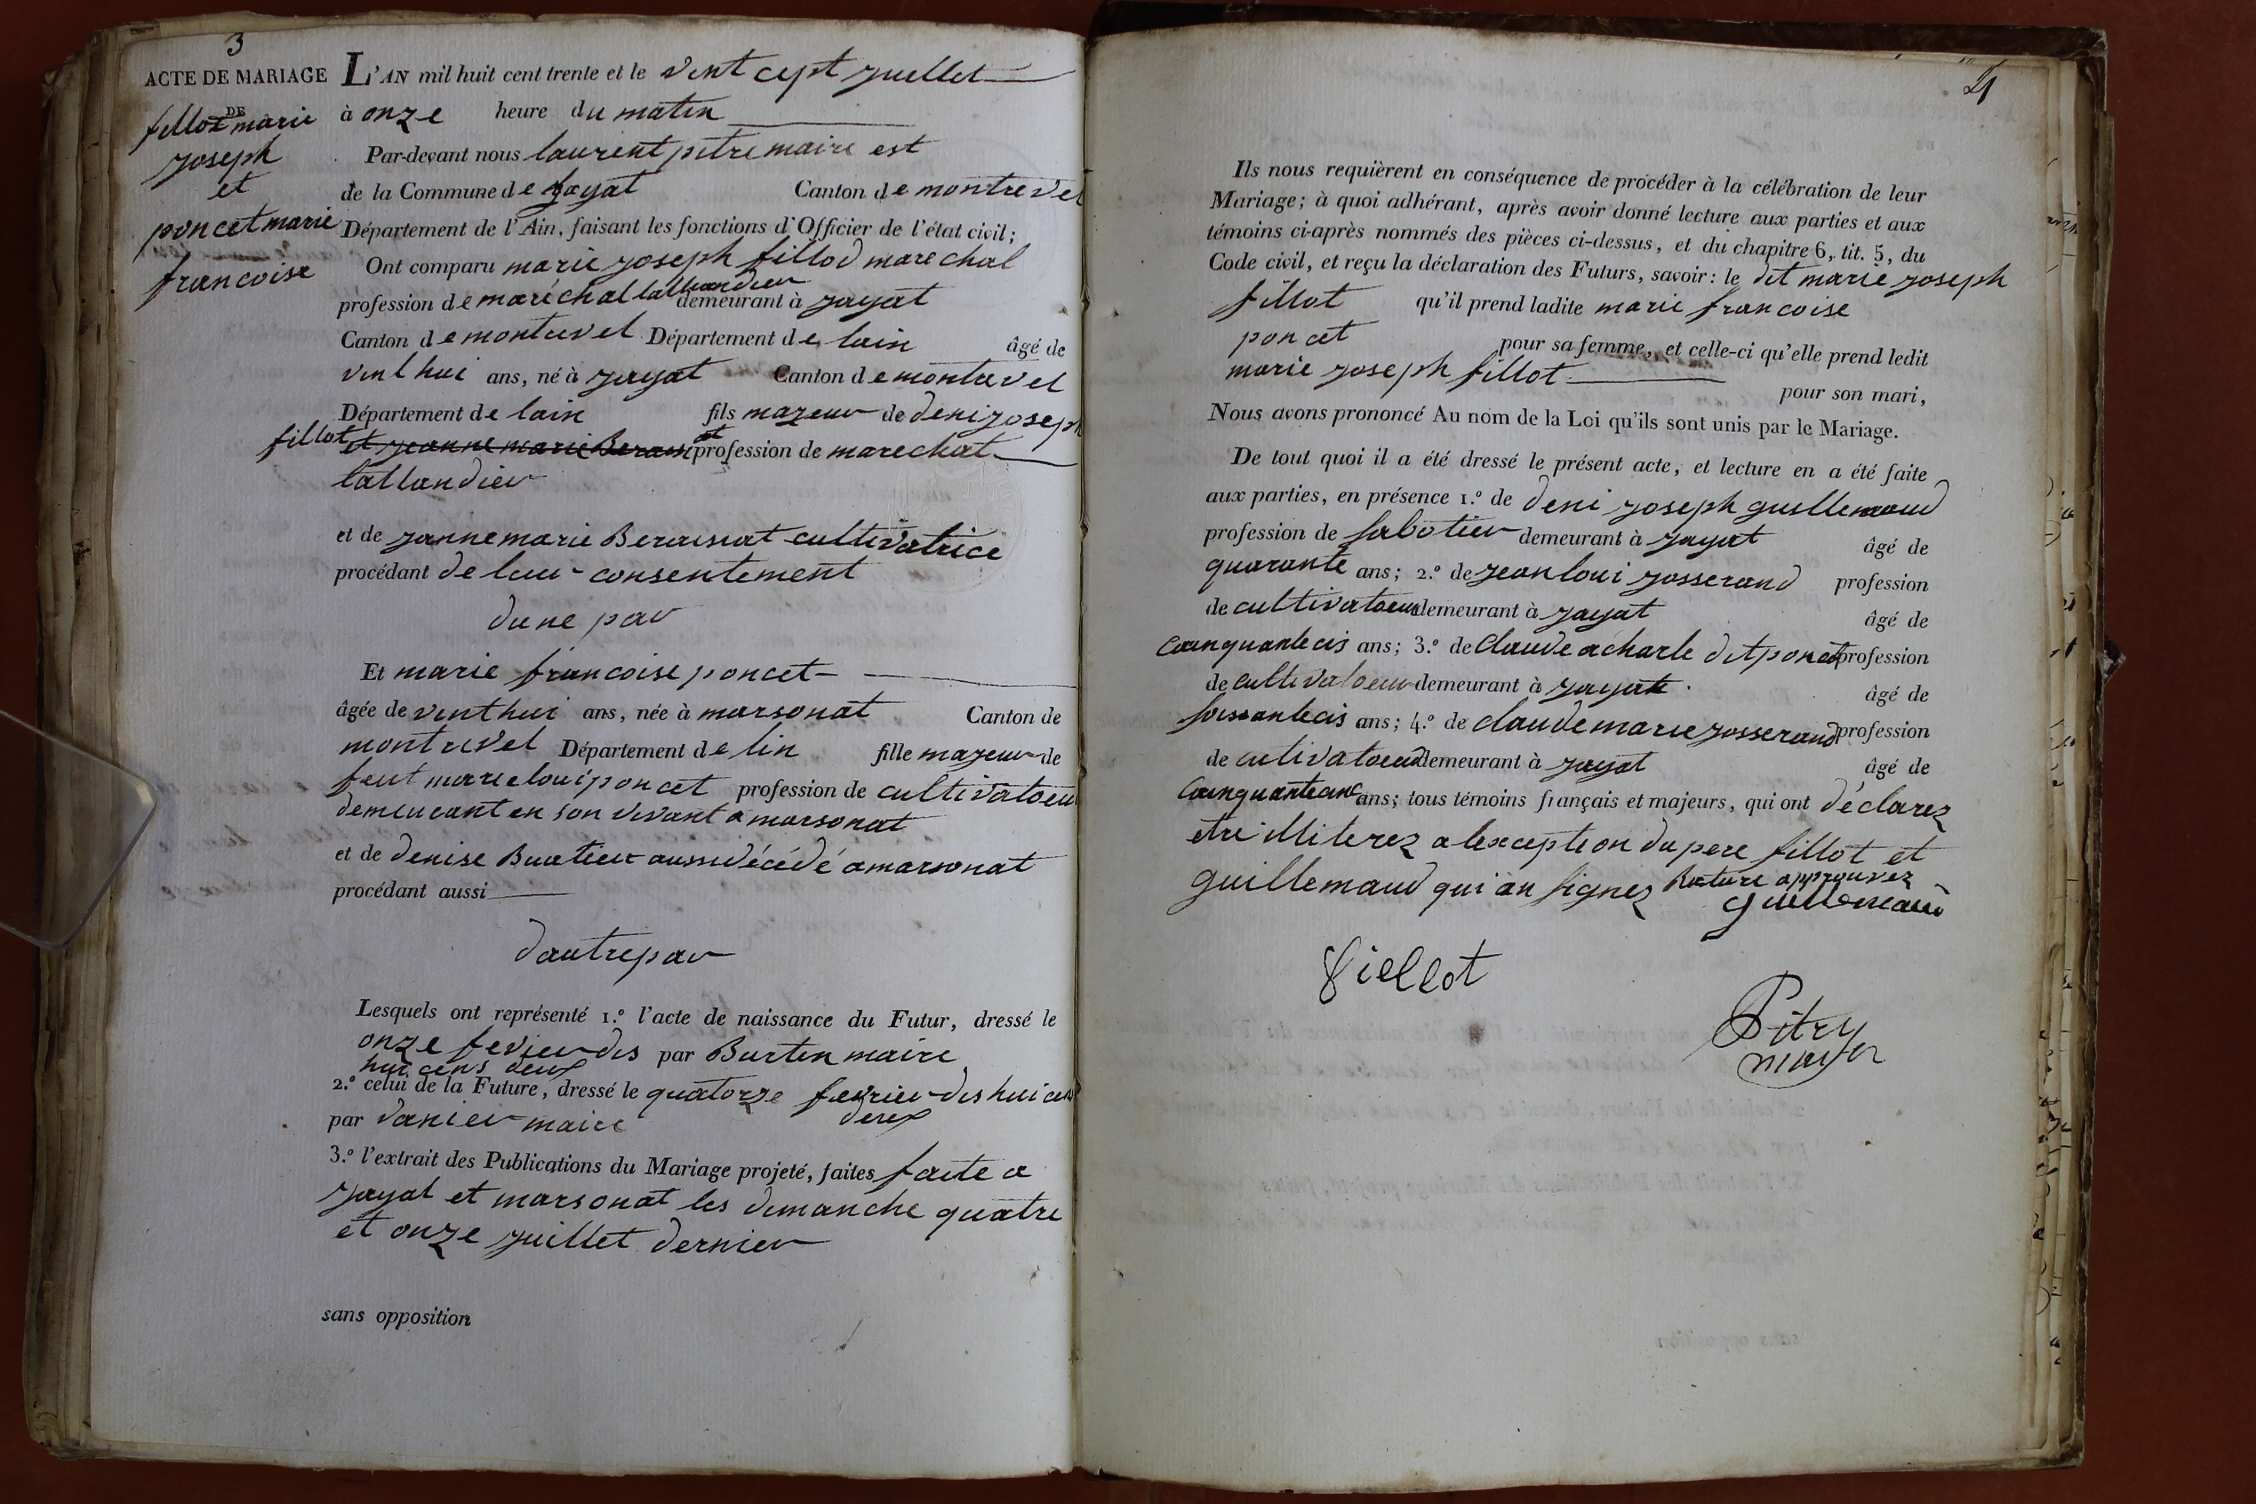 3
ACTE DE MARIAGE
DE
fillot marie
joseph
et
poncet marie
francoise
L'AN mil huit cent trente et le vint cept juellet
à onze heure du matin
Par-devant nous laurent pitre maire est
de la Commune de jayat Canton de montrevel
Département de l'Ain, faisant les fonctions d'Officier de l'état civil;
Ont comparu marie joseph fillod marechal
profession de maréchal tallandier demeurant à jayat
Canton de montrevel Département de lain âgé de
vint hui ans, né à jayat Canton de montrevel
Département de lain fils mazeur de deni joseph
fillot et jeanne marie Beraisnat profession de marechat
tallandier
et de jannemarie Beraisnat cultivatrice
procédant de leur consentement
dune par
Et marie francoise poncet
âgée de vint hui ans, née à marsonat Canton de
montrevel Département de lin fille mazeur de
feut marie loui poncet profession de cultivatoeur
demeurant en son vivant a marsonat
et de denise Buatier aussi décédé a marsonat
procédant aussi
dautre par
Lesquels ont représenté 1.º l'acte de naissance du Futur, dressé le
onze fevier dis par Burtin maire
hui cens deux
2.º celui de la Future, dressé le quatorze fevrier dis hui cens
par danier maire deux
3.º l'extrait des Publications du Mariage projeté, faites faite a
jayat et marsonat les dimanche quatre
et onze juillet dernier
sans opposition
4
Ils nous requièrent en conséquence de procéder à la célébration de leur
Mariage; à quoi adhérant, après avoir donné lecture aux parties et aux
témoins ci-après nommés des pièces ci-dessus, et du chapitre 6, tit. 5, du
Code civil, et reçu la déclaration des Futurs, savoir: le dit marie joseph
fillot qu'il prend ladite marie francoise
poncet pour sa femme, et celle-ci qu'elle prend ledit
marie joseph fillot pour son mari,
Nous avons prononcé Au nom de la Loi qu'ils sont unis par le Mariage.
De tout quoi il a été dressé le présent acte, et lecture en a été faite
aux parties, en présence 1.º de deni joseph guillemaud
profession de sabotier demeurant à jayat âgé de
quarante ans; 2.º de jean loui josserand profession
de cultivatoeur demeurant à jayat âgé de
cainquante cis ans; 3.º de Claude acharle dit poncet profession
de cultivatoeur demeurant à jayat âgé de
soissante cis ans; 4.º de claude marie josserand profession
de cutivatoeur demeurant à jayat âgé de
cainquante cinc ans; tous témoins français et majeurs, qui ont déclarez
etre illiterez a lexception du pere fillot et
guillemaud qui an signez Rature approuvez
guillemaud
fiellot
Pitry
mayer